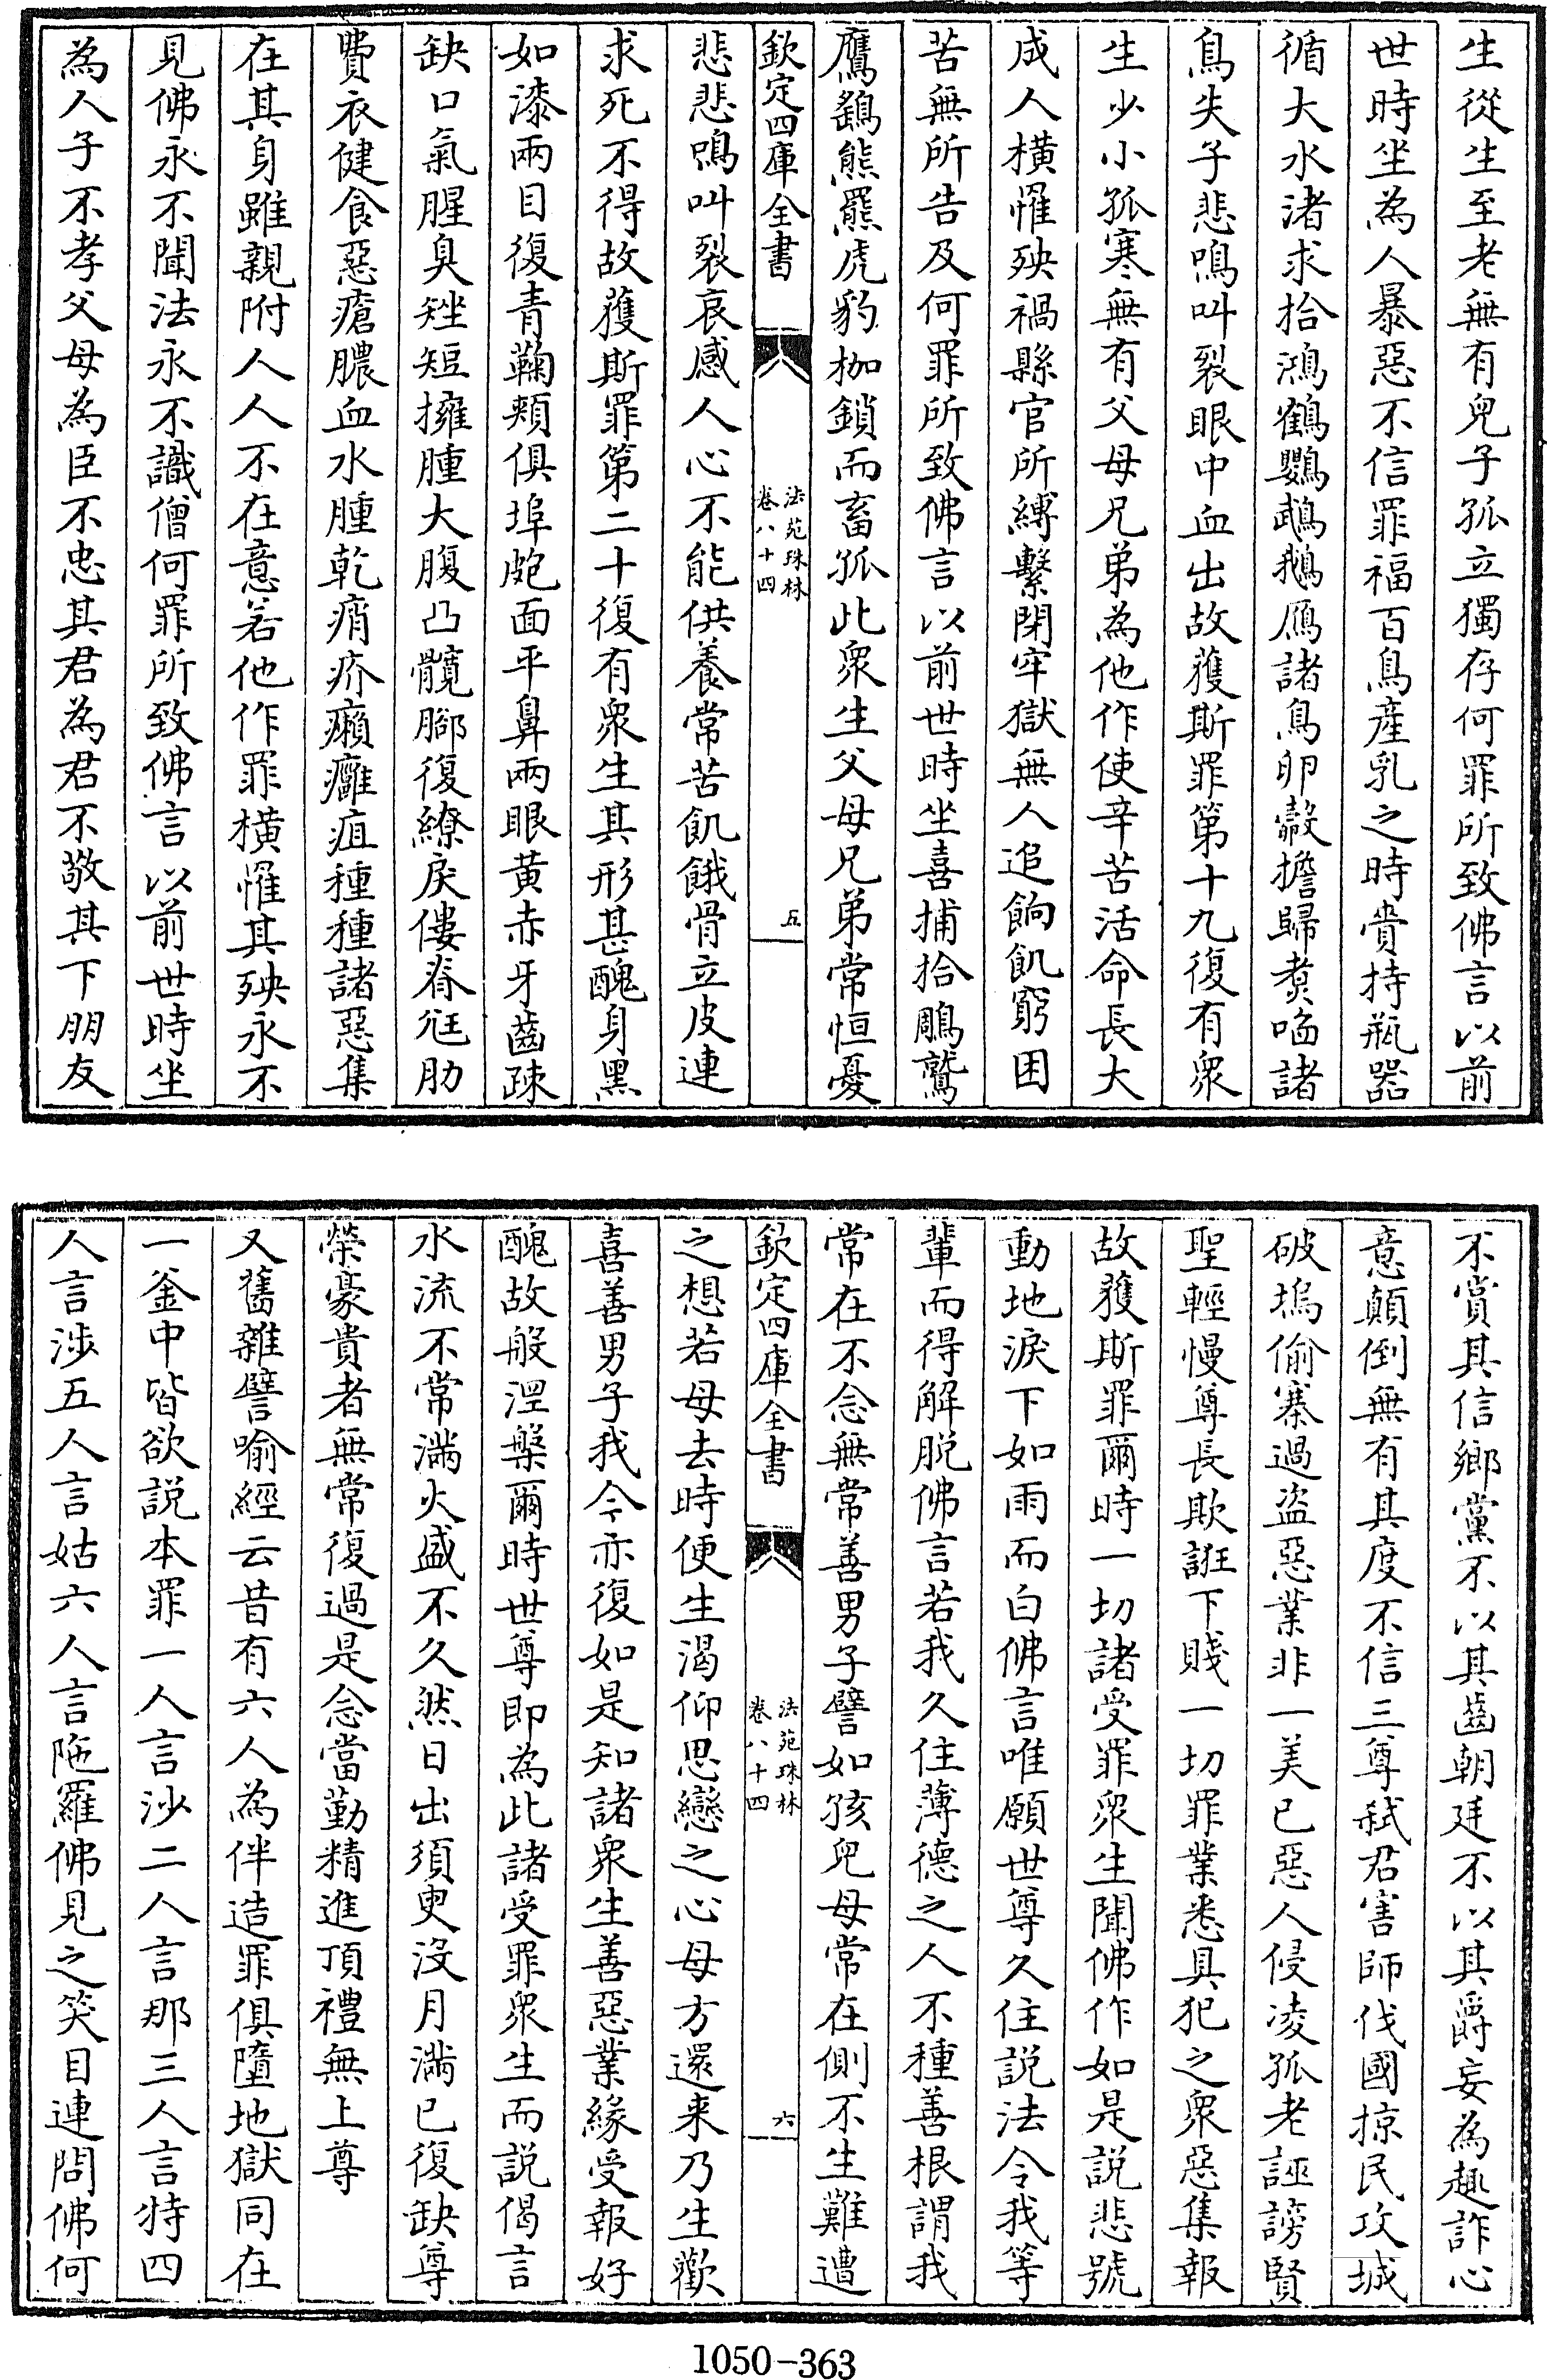 生從生至老無有兒子孤立獨存何罪所致佛言以前
世時坐為人暴惡不信罪福百鳥產乳之時賫持瓶器
循大水渚求拾鴻鶴鸚鵡鵝鴈諸鳥卵鷇擔歸煑啗諸
鳥失子悲鳴叫裂眼中血出故獲斯罪第十九復有衆
生少小孤寒無有父母兄弟為他作使辛苦活命長大
成人橫罹殃禍縣官所縛繫閉牢獄無人追餉飢窮困
苦無所告及何罪所致佛言以前世時坐喜捕拾鵰鷲
鷹鷂熊羆虎豹枷鎖而畜孤此衆生父母兄弟常恒憂
欽定四庫全書
法苑珠林
卷八十四
五
悲悲鳴叫裂哀感人心不能供養常苦飢餓骨立皮連
求死不得故獲斯罪第二十復有衆生其形甚醜身黑
如漆兩目復青䩭頰俱埠皰面平鼻兩眼黄赤牙齒疎
缺口氣腥臭矬短擁腫大腹凸髖脚復繚戾僂脊尫肋
費衣健食惡瘡膿血水腫乾痟疥癩癰疽種種諸惡集
在其身雖親附人人不在意若他作罪橫罹其殃永不
見佛永不聞法永不識僧何罪所致佛言以前世時坐
為人子不孝父母為臣不忠其君為君不敬其下朋友
不賞其信鄉黨不以其齒朝廷不以其爵妄為趣詐心
意顛倒無有其度不信三尊弒君害師伐國掠民攻城
破塢偷寨過盜惡業非一美已惡人侵凌孤老誣謗賢
聖輕慢尊長欺誑下賤一切罪業悉具犯之衆惡集報
故獲斯罪爾時一切諸受罪衆生聞佛作如是說悲號
動地淚下如雨而白佛言唯願世尊久住說法令我等
輩而得解脱佛言若我久住薄德之人不種善根謂我
常在不念無常善男子譬如孩兒母常在側不生難遭
欽定四庫全書
法苑珠林
卷八十四
六
之想若母去時便生渴仰思戀之心母方還來乃生歡
喜善男子我今亦復如是知諸衆生善惡業緣受報好
醜故般涅槃爾時世尊即為此諸受罪衆生而說偈言
水流不常滿火盛不久然日出須臾沒月滿已復缺尊
榮豪貴者無常復過是念當勤精進頂禮無上尊
又舊雜譬喻經云昔有六人為伴造罪俱墮地獄同在
一釜中皆欲説本罪一人言沙二人言那三人言特四
人言涉五人言姑六人言陁羅佛見之笑目連問佛何
1050-363